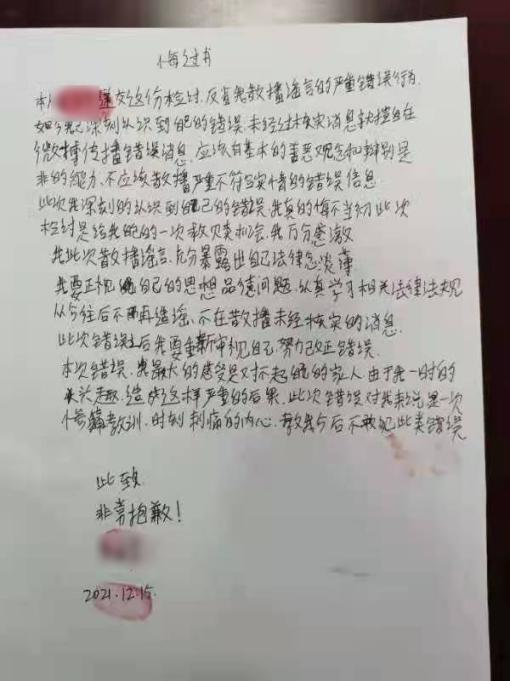 悔过书
本人 递交这份检讨,反省我散播谣言的严重错误行为.
如今我已深刻认识到自己的错误,未经过核实消息就擅自在
微博传播错误消息,应该有基本的善恶观念和辩别是
非的能力,不应该散播严重不符合实情的错误信息
此次我深刻的认识到自己的错误,我真的悔不当初此次
检讨是给我自己的一次教训和机会,我万分感激
我此次散播谣言,充分暴露出自己法律意识淡薄
我要正视自己的思想品德问题,认真学习相关法律法规
从今往后不再造谣,不在散播未经核实的消息.
此次错误之后我要重新审视自己,努力改正错误.
本次错误,我最大的感受是对不起自己的家人由于我一时的
造成这样严重的后果,此次错误对我来说是一次
教训,时刻刺痛的内心,教我今后不敢犯此类错误
此致
非常抱歉!
2021.12.15.